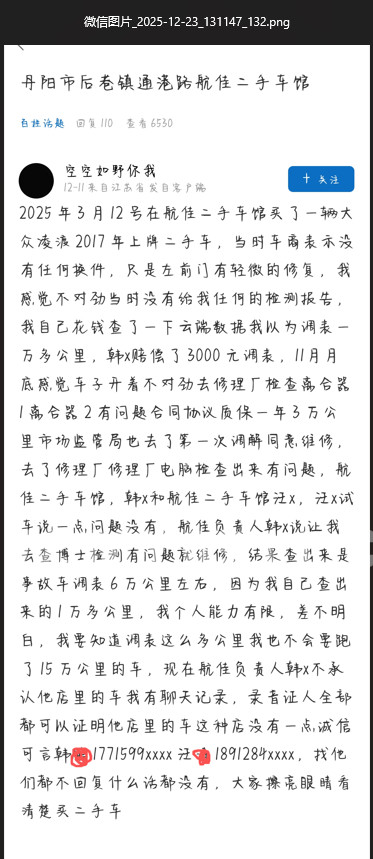 微信图片_2025-12-23_131147_132.png
丹阳市后巷镇通港路航佳二手车馆
百姓话题 回复 110 查看 6530
空空如野你我
12-11 来自江苏省 发自客户端
+ 关注
2025 年 3 月 12 号在航佳二手车馆买了一辆大
众凌渡 2017 年上牌二手车，当时车商表示没
有任何换件，只是左前门有轻微的修复，我
感觉不对劲当时没有给我任何的检测报告，
我自己花钱查了一下云端数据我以为调表一
万多公里，韩x赔偿了 3000 元调表，11月月
底感觉车子开着不对劲去修理厂检查离合器
1 离合器 2 有问题合同协议质保一年 3 万公
里市场监管局也去了第一次调解同意维修，
去了修理厂修理厂电脑检查出来有问题，航
佳二手车馆，韩x和航佳二手车馆汪x，汪x试
车说一点问题没有，航佳负责人韩x说让我
去查博士检测有问题就维修，结果查出来是
事故车调表 6 万公里左右，因为我自己查出
来的 1 万多公里，我个人能力有限，差不明
白，我要知道调表这么多公里我也不会要跑
了 15 万公里的车，现在航佳负责人韩x不承
认他店里的车我有聊天记录，录音证人全部
都可以证明他店里的车这种店没有一点诚信
可言韩 1771599xxxx 汪 1891284xxxx，找他
们都不回复什么话都没有，大家擦亮眼睛看
清楚买二手车